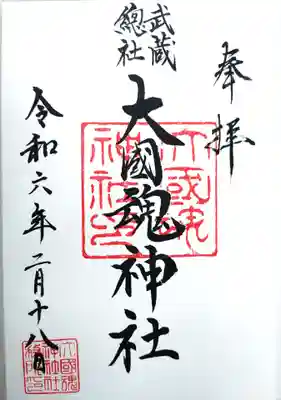 奉拝
武蔵
總社
大國魂神社
大國魂
神社印
令和六年二月十八日